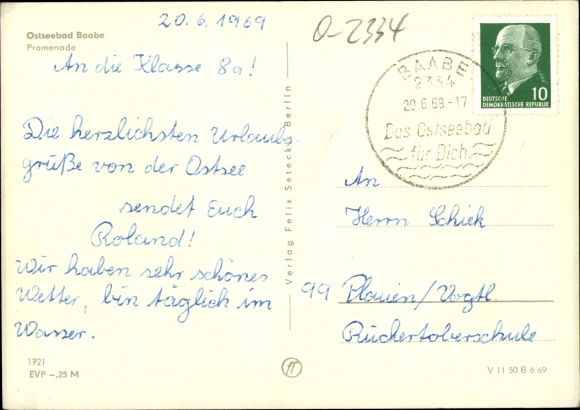 20.6.1969
O-2334
Ostseebad Baabe
Promenade
An die Klasse 8a!
Die herzlichsten Urlaubs-
grüße von der Ostsee
sendet Euch
Roland!
Wir haben sehr schönes
Wetter, bin täglich im
Wasser.
1721
EVP -,25 M
Verlag Felix Setecki, Berlin
BAABE
2334
20.6.69-17
Das Ostseebad
für Dich
10
DEUTSCHE
DEMOKRATISCHE REPUBLIK
An
Herrn Schiek
99 Plauen/Vogtl.
Rückertoberschule
V 11 50 B 6/69